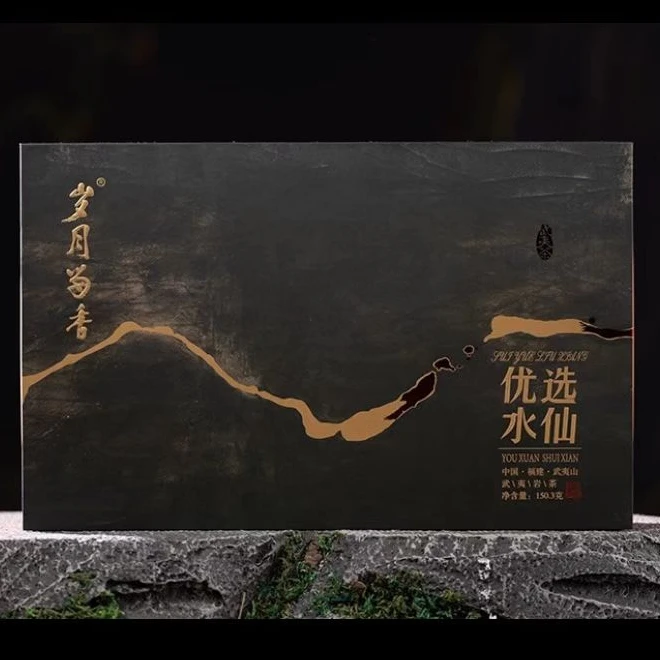 岁月留香®
SUI YUE LIU XIANG
优选
水仙
YOU XUAN SHUI XIAN
中国·福建·武夷山
武\夷\岩\茶
净含量：150.3克